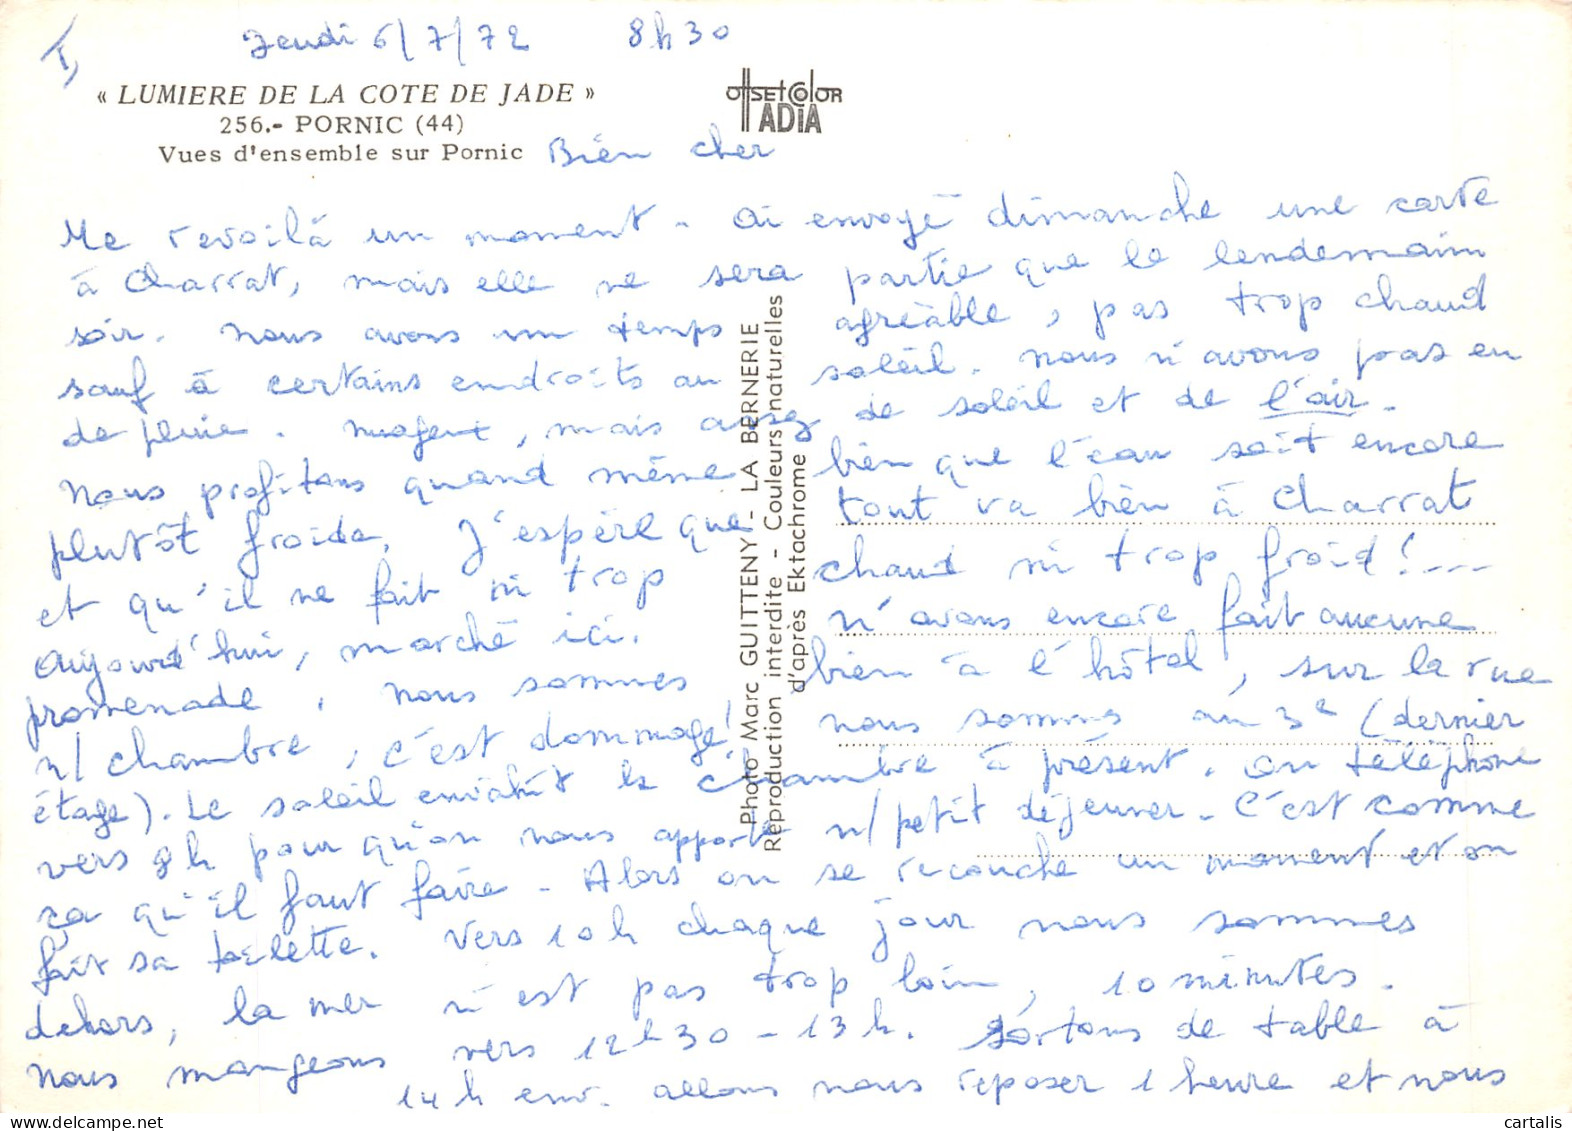 I)
Jeudi 6/7/72 8h30
« LUMIERE DE LA COTE DE JADE »
256.- PORNIC (44)
Vues d'ensemble sur Pornic
OffsetColor
ADIA
Bien cher
Me revoilà un moment - ai envoyé dimanche une carte
à Charrat, mais elle ne sera partie que le lendemain
soir. Nous avons un temps agréable, pas trop chaud
sauf à certains endroits au soleil. Nous n'avons pas eu
de pluie. nuageux, mais assez de soleil et de l'air.
Nous profitons quand même bien que l'eau soit encore
plutôt froide. J'espère que tout va bien à Charrat
et qu'il ne fait ni trop chaud ni trop froid!---
Aujourd'hui, marché ici. n'avons encore fait aucune
promenade, nous sommes bien à l'hôtel, sur la rue
n/ chambre, c'est dommage! nous sommes au 3e (dernier
étage). Le soleil envahit la chambre à présent. On téléphone
vers 8h pour qu'on nous apporte n/ petit déjeuner. C'est comme
ça qu'il faut faire - Alors on se recouche un moment et on
fait sa toilette. Vers 10h chaque jour nous sommes
dehors, la mer n'est pas trop loin, 10 minutes.
Nous mangeons vers 12h30 - 13h. Sortons de table à
14h env. allons nous reposer 1 heure et nous
Photo Marc GUITTENY - LA BERNERIE
Reproduction interdite - Couleurs naturelles
d'après Ektachrome
cartalis